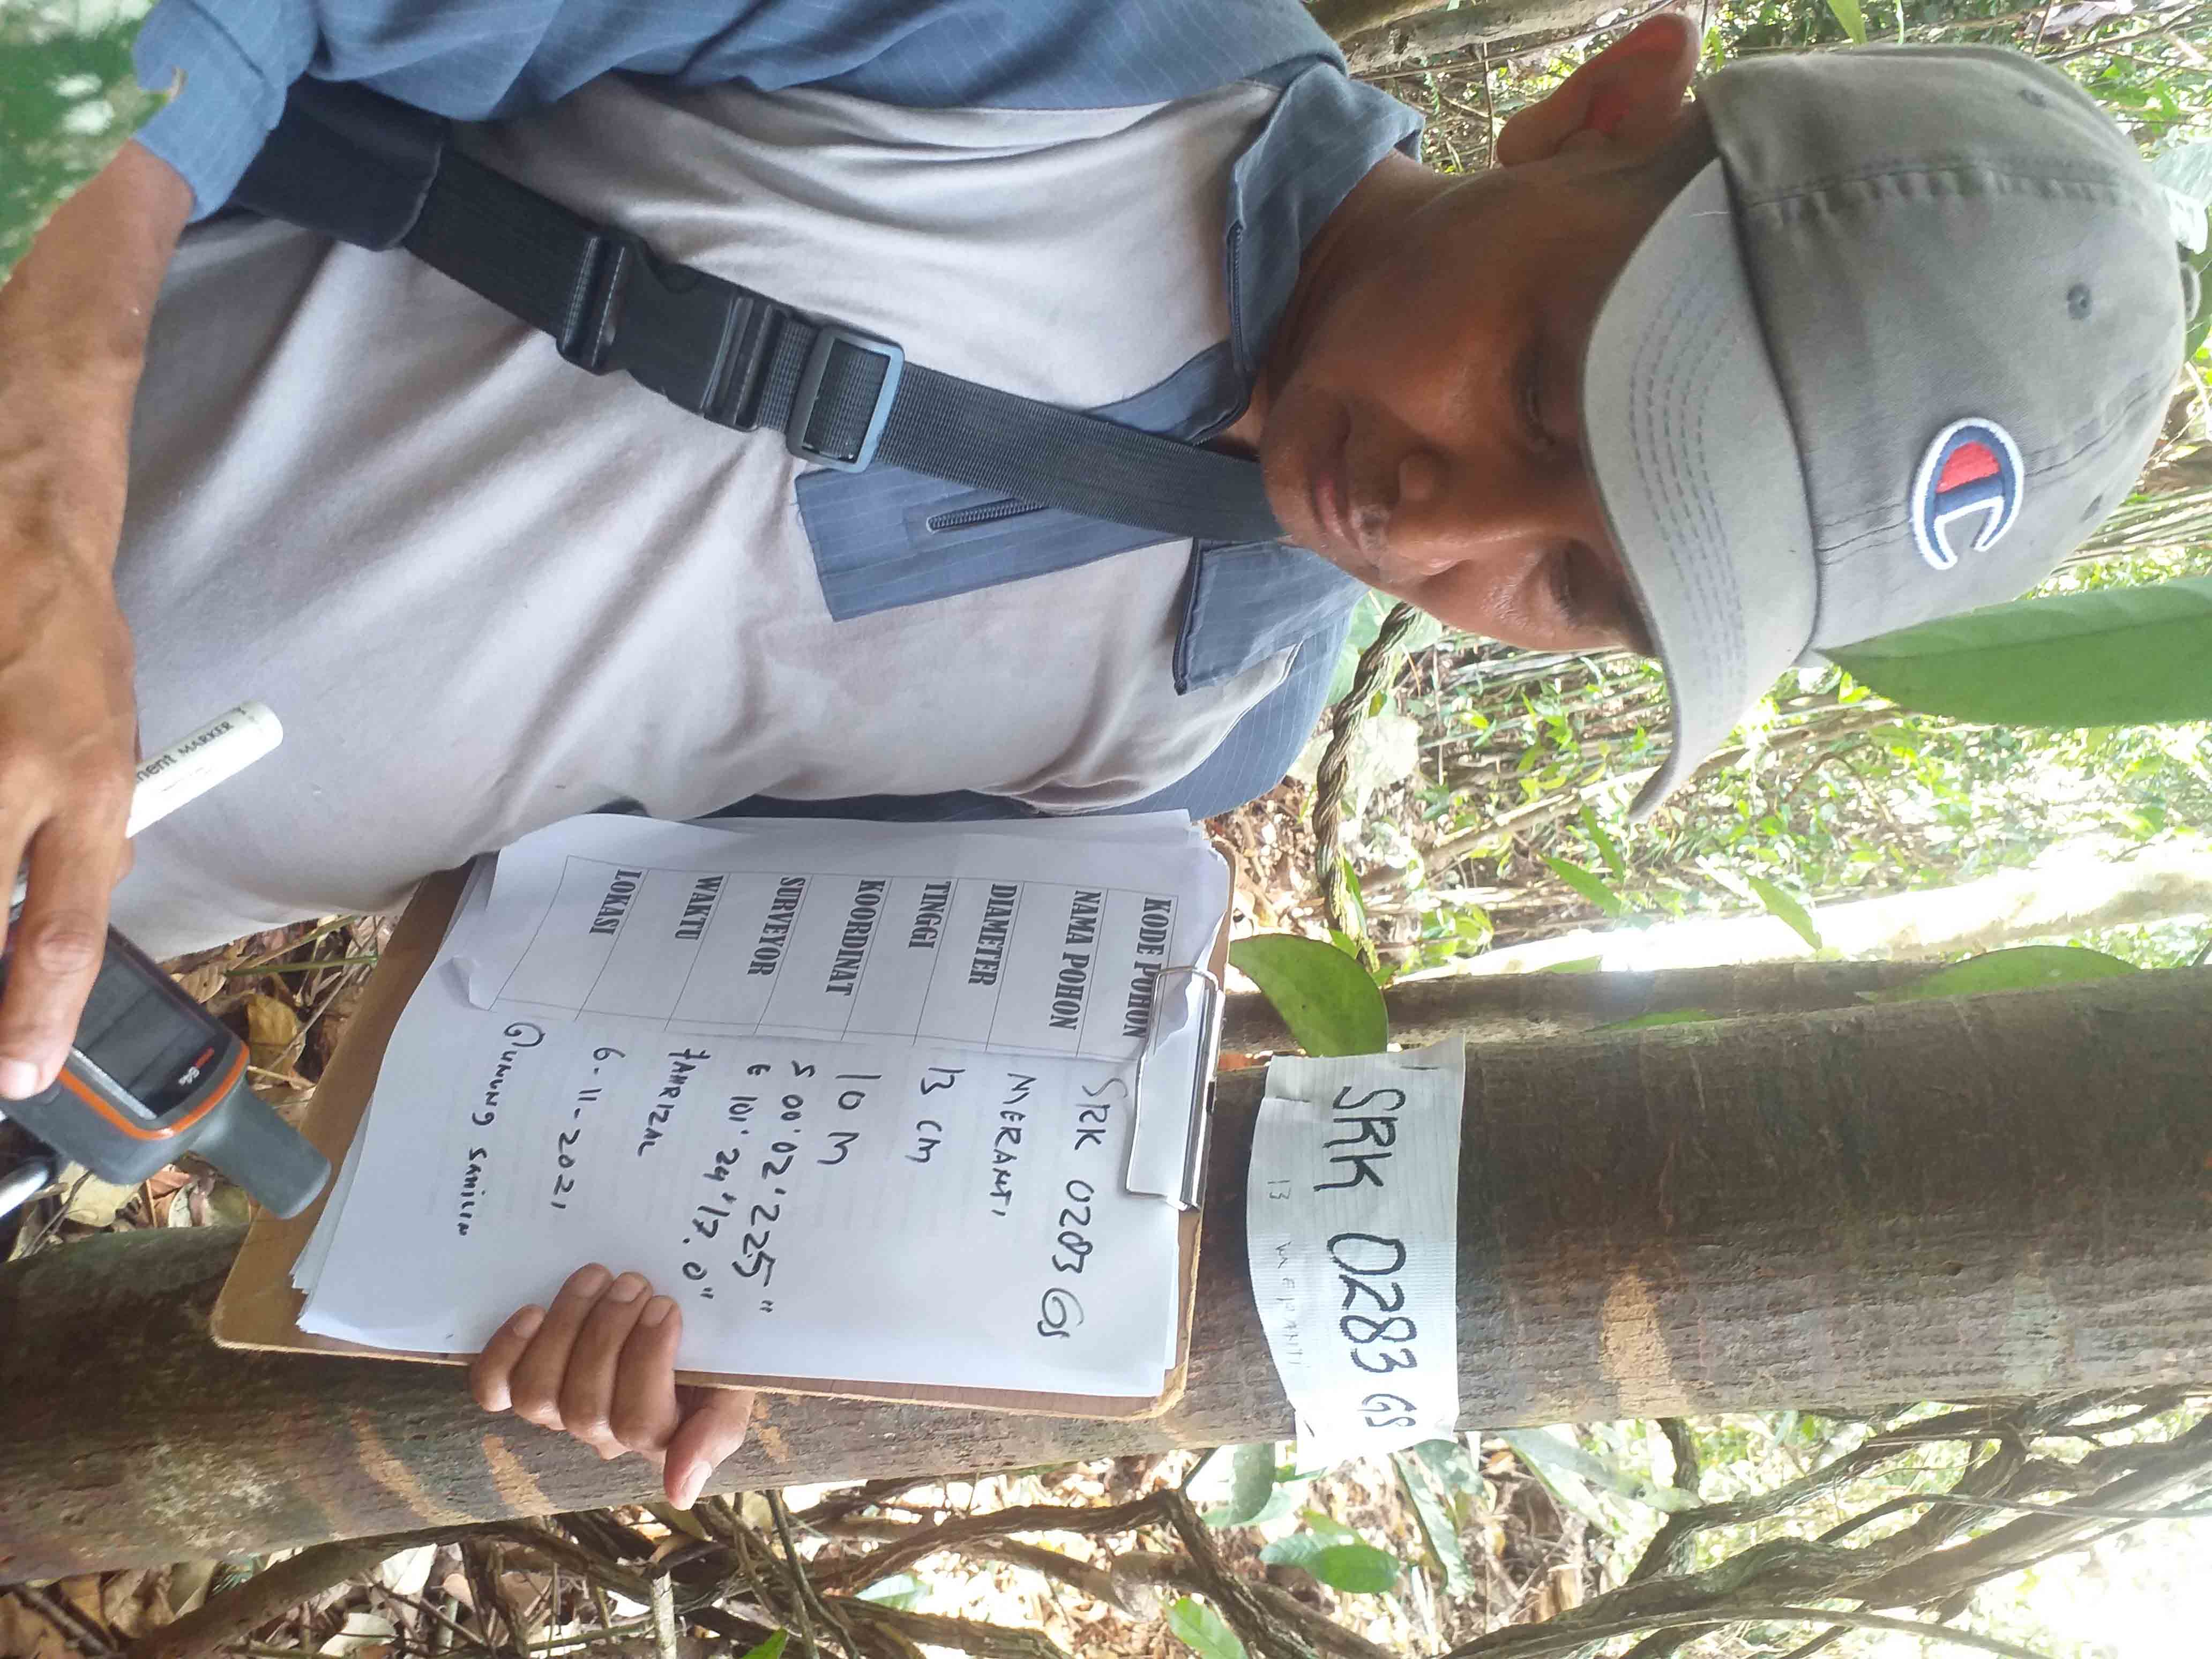 SRK 0283 GS
13 MERANTI
KODE POHON SRK 0283 GS
NAMA POHON MERANTI
DIAMETER 13 CM
TINGGI 10 M
KOORDINAT S 00' 02' 225"
E 101' 24' 17.0"
SURVEYOR FAHRIZAL
WAKTU 6-11-2021
LOKASI GUNUNG SAHILIN
MARKER
64s